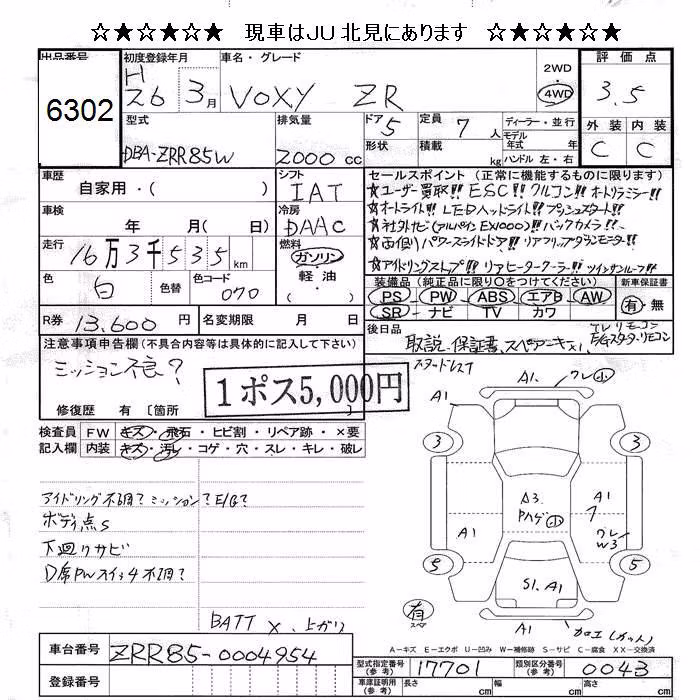 ☆★☆★☆★ 現車はJU北見にあります ☆★☆★☆★
出品番号 初度登録年月 車名・グレード 評価点
6302 H 26 3月 VOXY ZR 2WD 4WD 3.5
型式 排気量 ドア 5 定員 7人 ディーラー・並行 外装 内装
DBA-ZRR85W 2000 cc 形状 積載 kg モデル年式 年 ハンドル 左・右 C C
車歴 シフト セールスポイント (正常に機能するものに限ります)
自家用・( ) IAT ★ユーザー買取!! ESC!! クルコン!! オートリアミラー!!
車検 冷房 ★オートライト!! LEDヘッドライト!! プッシュスタート!!
年 月( 日) DAAC ★社外ナビ(アルパインEX1000)!! バックカメラ!!
走行 燃料 ★両側パワースライドドア!! リアフリップダウンモニター!!
16万3千535km ガソリン ★アイドリングストップ!! リアヒータークーラー!! ツインサンルーフ!!
色 白 色替 色コード 070 軽油 ( ) 装備品 (純正品に限り○をつけてください) 新車保証書
PS・PW・ABS・エアB・AW 有・無
SR・ナビ TV カワ
R券 13,600円 名変期限 月 日 後日品 取説、保証書、スペアキーx1, TVリモコン
E/gスタータ・リモコン
スタッドレス
注意事項申告欄 (不具合内容等は具体的に記入して下さい)
ミッション不良?
1ポス5,000円
修復歴 有 [箇所 ]
検査員 FW キズ・飛石・ヒビ割・リペア跡・×要
記入欄 内装 キズ・汚レ・コゲ・穴・スレ・キレ・破レ
アイドリング不調? ミッション? E/G?
ボディ点S
下廻りサビ
D席PWスイッチ不調?
BATT x、上ガリ
A1. クレ小
A1
3 3
A3. Pハゲ小
A1
A1
クレ W3
5 5
S1. A1
有 スペア
A1
カロエ(カット)
A-キズ E-エクボ U-凹み W-補修跡 S-サビ C-腐食 XX-交換済
車台番号 ZRR85-0004954 型式指定番号(参考) 17701 類別区分番号(参考) 0043
登録番号 車庫証明用(参考) 長さ cm 幅 cm 高さ cm